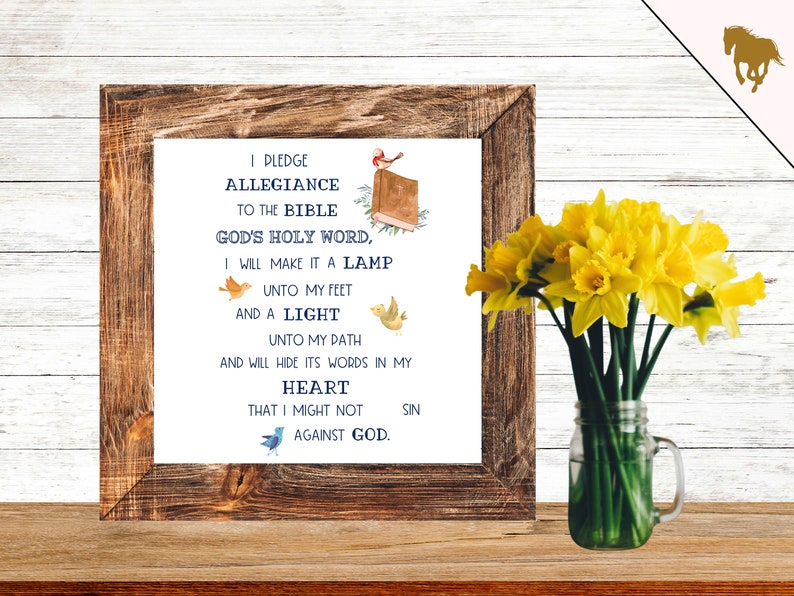 I PLEDGE
ALLEGIANCE
TO THE BIBLE
GOD'S HOLY WORD,
I WILL MAKE IT A LAMP
UNTO MY FEET
AND A LIGHT
UNTO MY PATH
AND WILL HIDE ITS WORDS IN MY
HEART
THAT I MIGHT NOT SIN
AGAINST GOD.